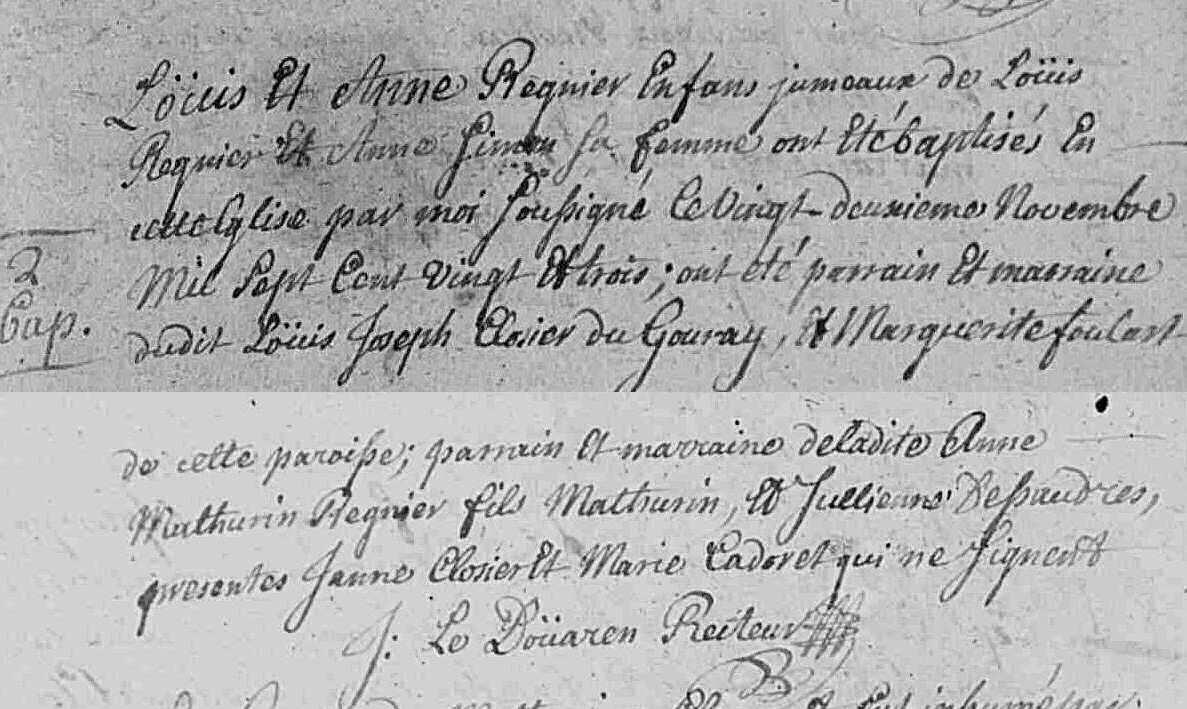 Loüis Et Anne Regnier Enfans jumeaux de Loüis
Regnier Et Anne Simon sa femme ont Eté baptisés En
cette Eglise par moi soussigné, le vingt-deuxieme Novembre
2 Mil Sept Cent vingt Et trois; ont été parrain Et marraine
Bap. dudit Loüis Joseph Closier du Gouray, Et Marguerite foulart
de cette paroisse; parrain Et marraine deladite Anne
Mathurin Regnier fils Mathurin, Et Jullienne Dessaudres,
presentes Janne Closier Et Marie Cadoret qui ne signent
J: Le Doüaren Recteur